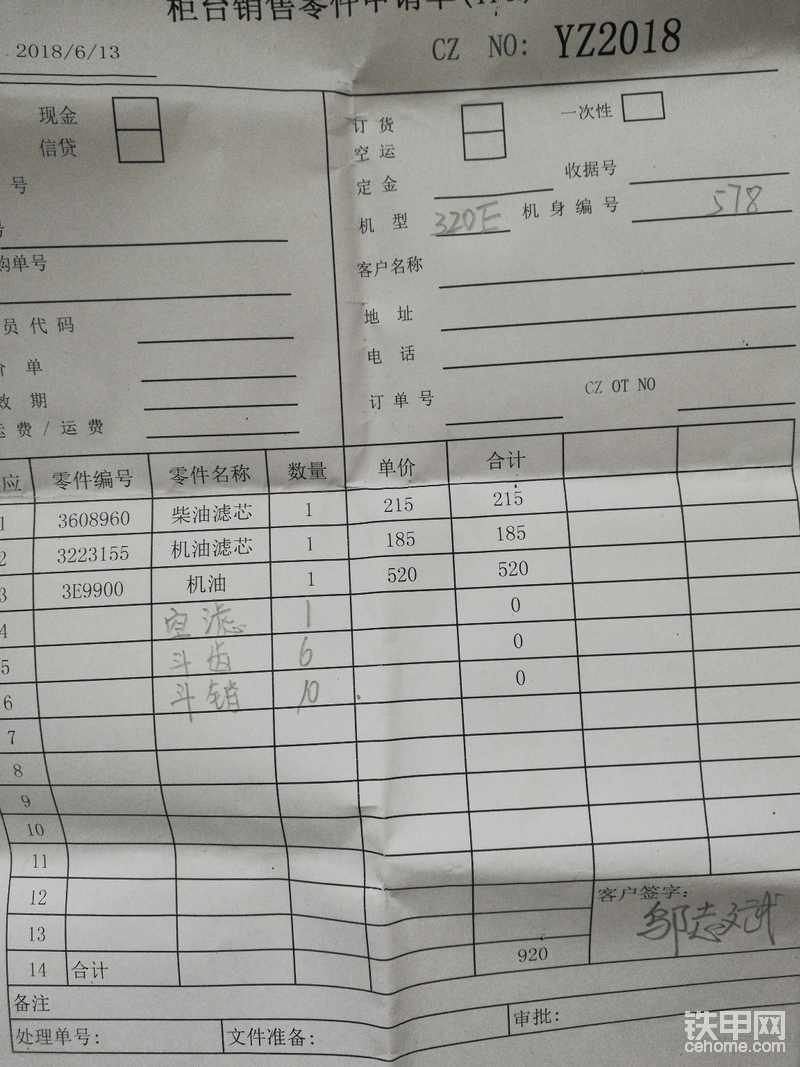 柜台销售零件申请单
2018/6/13
CZ NO: YZ2018
现金
信贷
订货
空运
一次性
号
定金
收据号
机型 320E 机身编号 578
号
购单号
客户名称
员代码
地址
价单
电话
效期
订单号
CZ OT NO
运费/运费
应 零件编号 零件名称 数量 单价 合计
1 3608960 柴油滤芯 1 215 215
2 3223155 机油滤芯 1 185 185
3 3E9900 机油 1 520 520
4 空滤 1 0
5 斗齿 6 0
6 斗销 10 0
7
8
9
10
11
12
客户签字:
13
邹志斌
14 合计 920
备注
处理单号: 文件准备: 审批:
铁甲网
cehome.com